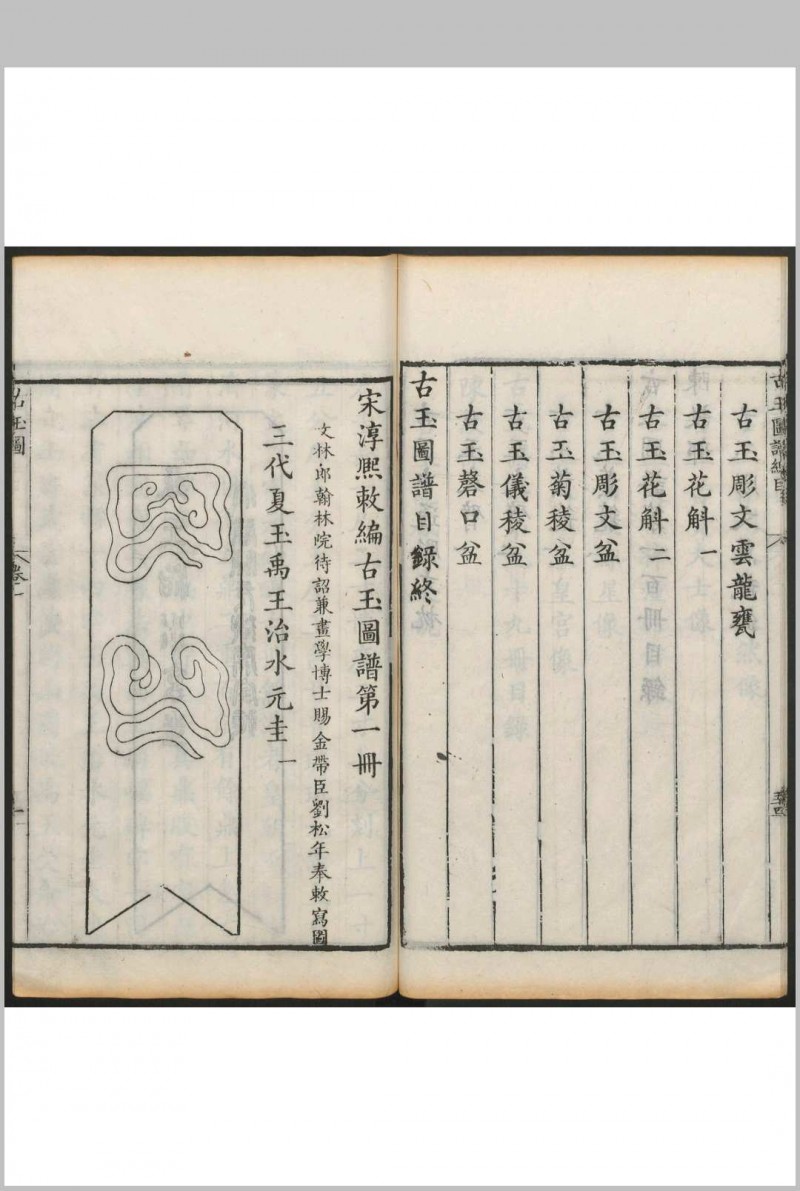 古玉圖譜總目錄
古玉彫文雲龍甕
古玉花斛一
古玉花斛二
古玉彫文盆
古玉菊稜盆
古玉儀稜盆
古玉磬口盆
古玉圖譜目錄終
宋淳熙敕編古玉圖譜第一冊
文林郎翰林院待詔兼畫學博士賜金帶臣劉松年奉敕寫圖
三代夏玉禹王治水元圭一
古玉圖
卷一